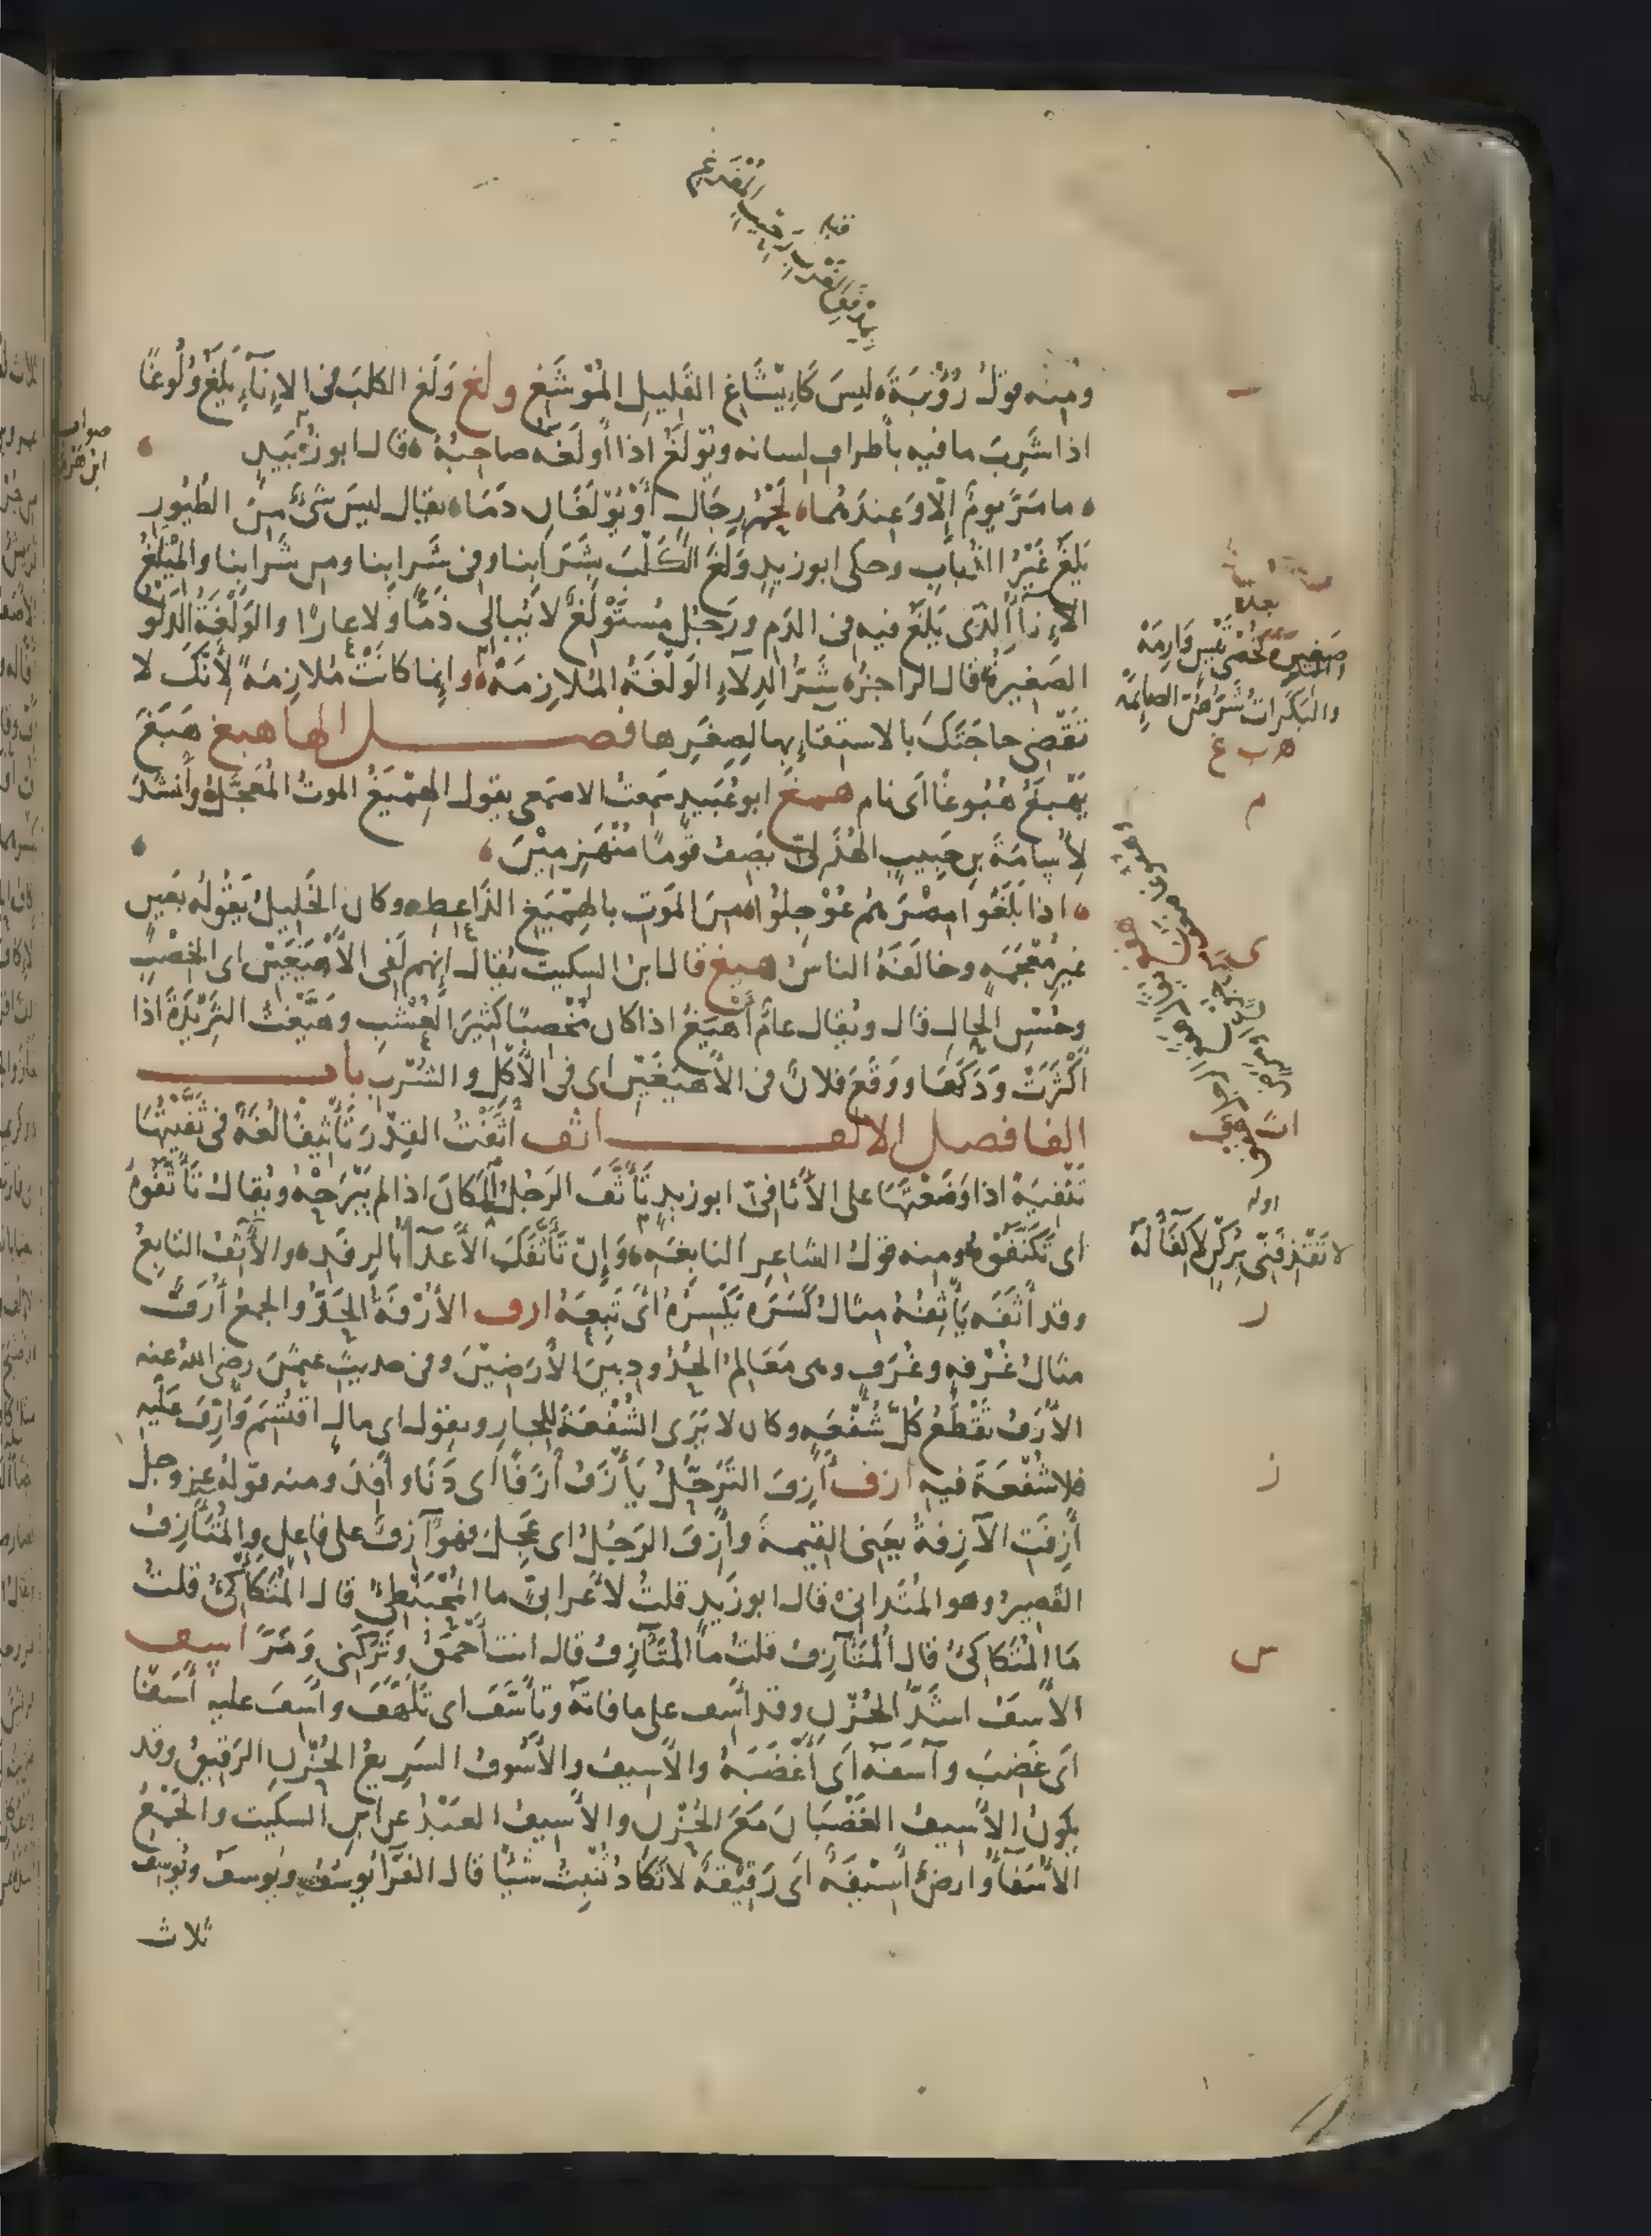 ومنه قول رُؤْبَةَ ليسَ كَإِيْشَاغِ القَليلِ المُوْشَغِ ولغ وَلَغَ الكلبُ فى الاِنَآءِ يَلَغُ وُلُوغًا
اذا شَرِبَ ما فيه بأطرافِ لسانه ويُوْلَغُ اذا أَوْلَغَه صاحِبُهُ قال ابو زُبَيدٍ
ما مَرَّ يومٌ اِلّا وَعِندَهُما لَحْمُ رِجَالٍ أَوْ يُوْلَغَانِ دَمَا يقال ليسَ شَىْءٌ مِنَ الطُيُورِ
يَلَغُ غَيْرُ الذُبابِ وحكى ابو زيدٍ وَلَغَ الكَلْبُ بِشَرَابِنا وفى شَرابِنا ومن شَرابِنا والمِيْلَغُ
الاِنآءُ الذى يَلَغُ فيه فى الدَمِ ورَجُلٌ مُسْتَوْلِغٌ لا يُبالِى ذَمًّا وَلا عارًا والوَلْغَةُ الدَلْوُ
الصَغيرَةُ قال الراجزُ شَرُّ الدِلآءِ الوَلْغَةُ المُلازِمَهْ وإنما كانَتْ مُلازِمَةً لأَنَّكَ لا
تَقْضِى حاجَتَكَ بالاستِقآءِ بها لِصِغَرِها فصل الها هبغ هَبَغَ
يَهْبَغُ هُبُوغًا أى نام همغ ابو عُبَيدٍ سَمِعتُ الاصمَعى يقول الهِمْيَغُ الموتُ المُعَجَّلُ وأنشَدَ
لأُسامَةَ بنِ حَبِيبٍ الهُذَلىّ يَصِفُ قَومًا مُنْهَزِمِيْنَ
اذا بَلَغُوا مِصْرَهُم عُوْجِلُوا مِنَ المَوتِ بالهِمْيَغِ الذَاعِطِ وكان الخَليلُ يَقُولُه بعَينٍ
غيرِ مُعْجَمَةٍ وخالَفَهُ الناسُ هيغ قال ابن السكيت يُقال إنهم لَفِى الأَهْيَغَيْنِ اى الخِصْبِ
وحُسْنِ الحالِ قال ويُقال عامٌ أَهْيَغُ اذا كان مُخْصِبًا كثيرَ العُشْبِ وهَيَّغْتُ الثَرِيْدَةَ اذا
أَكْثَرْتَ وَدَكَها ووَقَعَ فلانٌ فى الأَهْيَغَيْنِ اى فى الأَكْلِ والشُرْبِ باب
الفا فصل الالف اثف أَثَّفْتُ القِدْرَ تَأْثيفًا لُغَةٌ فى ثَفَّيْتُها
تَثْفِيَةً اذا وَضَعْتَها على الأَثافِىّ ابو زيدٍ تَأَثَّفَ الرَجُلُ المَكانَ اذا لم يَبْرَحْهُ ويُقالُ تَأَثَّفُوهُ
اى تَكَنَّفُوهُ ومنه قولُ الشاعِرِ النابِغَةِ وَإِنْ تَأَثَّفَكَ الأَعْدآءُ بالرِفَدِ والآثِفُ التابِعُ
وقد أَثَفَه يَأْثِفُهُ مثالُ كَسَرَه يَكْسِرُهُ أى تَبِعَهُ ارف الأُرْفَةُ الحَدُّ والجمعُ أُرَفٌ
مثالُ غُرْفَةٍ وغُرَفٍ وهى مَعَالِمُ الحُدُودِ بينَ الأَرَضِيْنَ وفى حديثِ عثمنَ رضى الله عنه
الأُرَفُ تَقْطَعُ كُلَّ شُفْعَةٍ وكان لا يَرَى الشُفْعَةَ للجارِ ويقول اى مالٍ اقْتُسِمَ وَأُرِّفَ عَلَيْهِ
فلا شُفْعَةَ فيه ازف أَزِفَ التَرَحُّلُ يَأْزَفُ أَزَفًا أى دَنَا وأَفِدَ ومنه قولهُ عز وجل
أَزِفَتِ الآزِفَةُ يعنى القيمة وأَزِفَ الرَجُلُ اى عَجِلَ فهو آزِفٌ على فاعِلٍ والمُتَآزِفُ
القَصيرُ وهو المُتَدانِى قال ابو زيدٍ قلتُ لأَعرابىّ ما المُحْبَنْطِئُ قال المُتَكَأْكِئُ قلتُ
مَا المُتَكَأْكِئُ قال المُتَآزِفُ قلتُ ما المُتَآزِفُ قال انت أَحْمَقُ وتَرَكَنِى وَمَرَّ اسف
الأَسَفُ اشَدُّ الحُزْنِ وقد أَسِفَ على ما فاتَهُ وتَأَسَّفَ اى تَلَهَّفَ وأَسِفَ عليه أَسَفًا
اى غَضِبَ وآسَفَهُ اى أَغْضَبَهُ والأَسِيفُ والأَسُوفُ السَرِيعُ الحُزْنِ الرَقيقُ وقد
يكونُ الأَسيفُ الغَضْبَانَ مَعَ الحُزْنِ والأَسِيفُ العَبْدُ عن ابن السكيت والجَمْعُ
الأُسَفَآءُ وارضٌ أَسِيْفَةٌ اى رَقيْقَةٌ لا تَكَادُ تُنْبِتُ شيئًا قال الفَرّآ يُوسُفُ ويُوسَفُ ويُوسِفُ
ثلاث
صواب
ابن هَرْمَةَ
بعده
والبَكَراتُ شَرُّهُنَّ الصائِمَهْ
ه ب غ
م
ى
اث ف
اوله
لا تَقْذِفَنِّى بِرُكْنٍ لا كِفَآءَ لَهُ
ر
ز
س